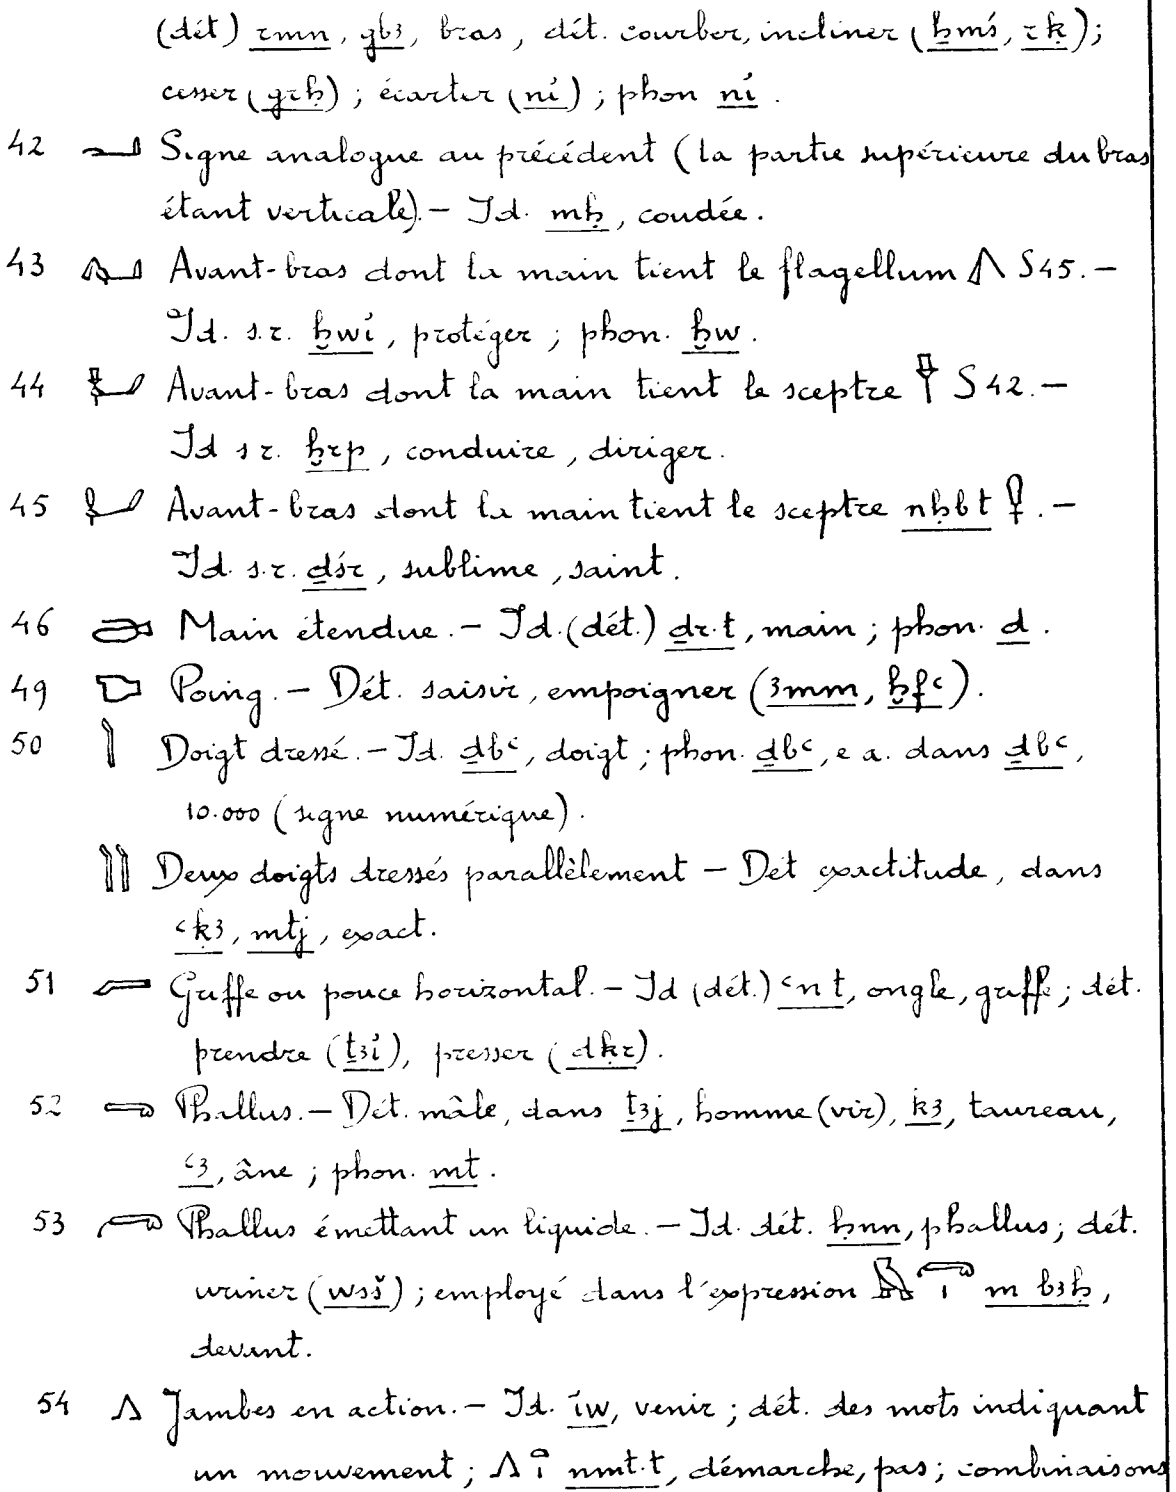 (dét) rmn, gbꜣ, bras, dét. courber, incliner (ḫmś, rḳ);
cesser (grḥ); écarter (nỉ); phon nỉ.
42 𓂣 Signe analogue au précédent (la partie supérieure du bras
étant verticale). — Id. mḥ, coudée.
43 𓂪 Avant-bras dont la main tient le flagellum S45. —
Id. s.r. ḫwỉ, protéger; phon. ḫw.
44 Avant-bras dont la main tient le sceptre S 42. —
Id s r. ḫrp, conduire, diriger.
45 Avant-bras dont la main tient le sceptre nḥbt. —
Id. s.r. ḏśr, sublime, saint.
46 Main étendue. — Id. (dét.) ḏr.t, main; phon. d.
49 Poing. — Dét. saisir, empoigner (ꜣmm, ḫfꜥ).
50 Doigt dressé. — Id. ḏbꜥ, doigt; phon. ḏbꜥ, e a. dans ḏbꜥ,
10.000 (signe numérique).
Deux doigts dressés parallèlement — Dét exactitude, dans
ꜥḳꜣ, mtj, exact.
51 Griffe ou pouce horizontal. — Id (dét.) ꜥn t, ongle, griffe; dét.
prendre (ṯꜣỉ), presser (dḳr).
52 Phallus. — Dét. mâle, dans ṯꜣj, homme (vir), kꜣ, taureau,
ꜥꜣ, âne; phon. mt.
53 Phallus émettant un liquide. — Id. dét. ḥnn, phallus; dét.
uriner (wsš); employé dans l'expression m bꜣḥ,
devant.
54 Jambes en action. — Id. ỉw, venir; dét. des mots indiquant
un mouvement; nmt.t, démarche, pas; combinaisons